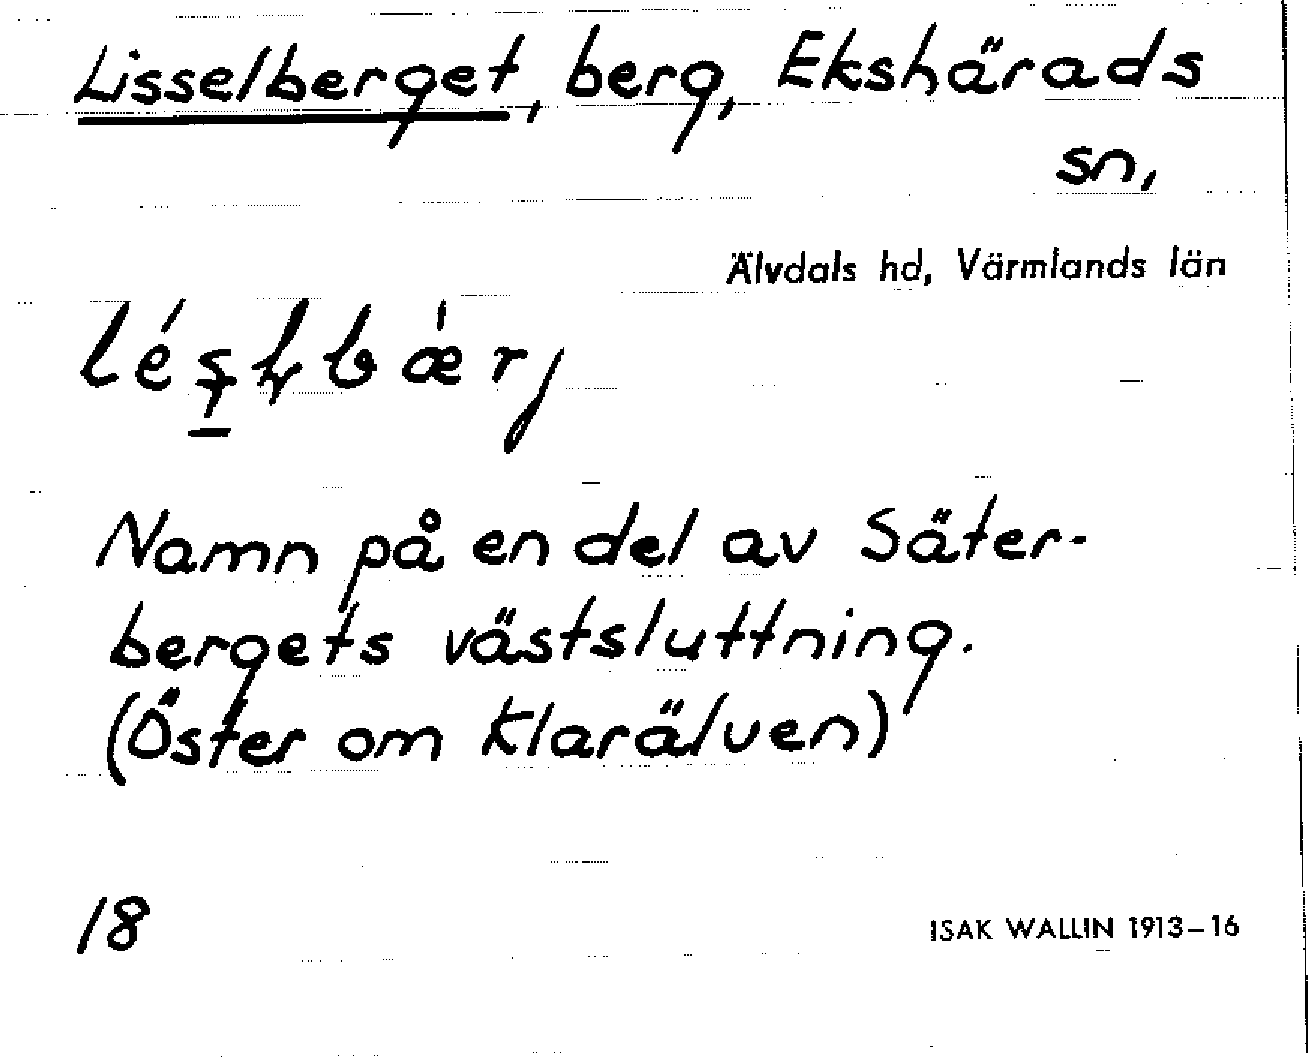 Lisselberget, berg, Ekshärads
sn,
Älvdals hd, Värmlands län
Namn på en del av Säter-
bergets västsluttning.
(Öster om Klarälven)
18
ISAK WALLIN 1913–16